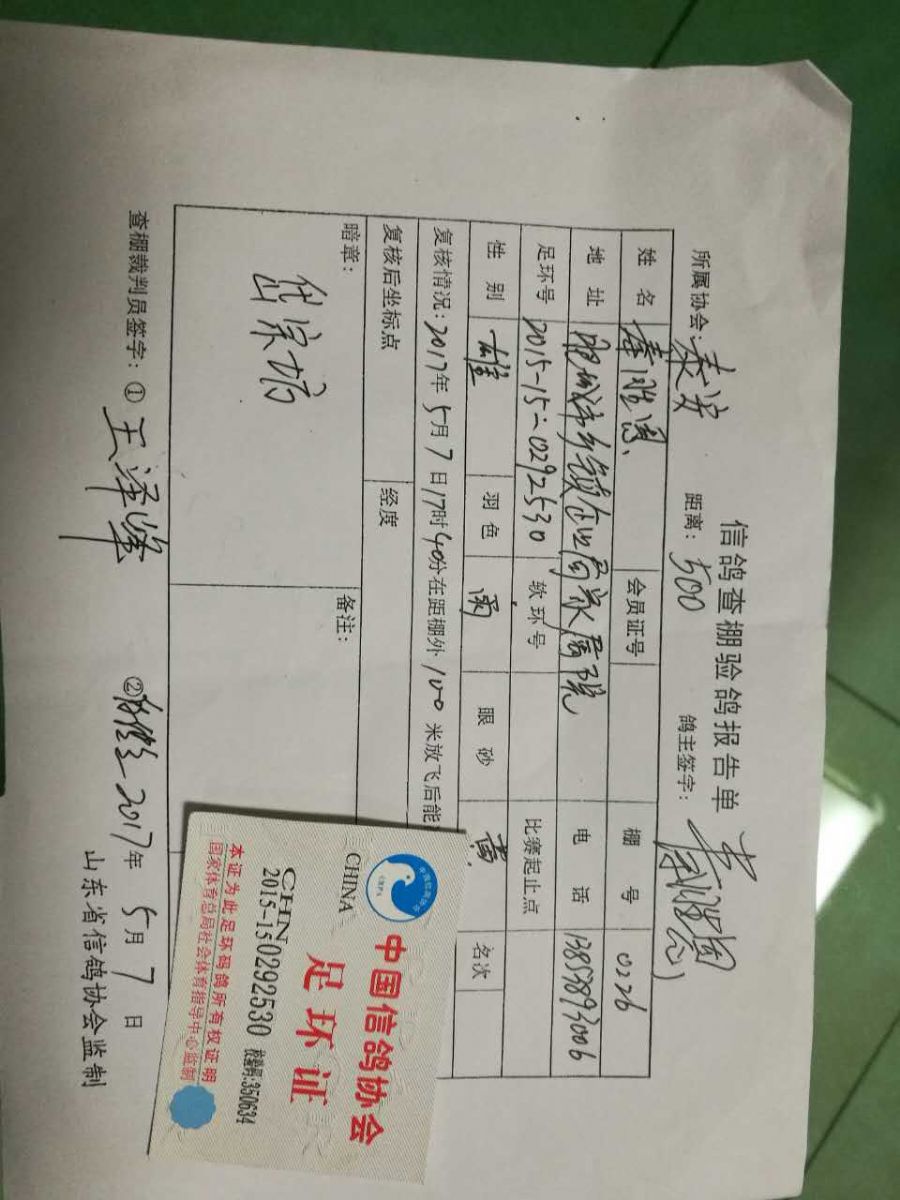 信鸽查棚验鸽报告单
所属协会:泰安 距离:500 鸽主签字:
姓名 会员证号 棚号 0226
地址 乡镇企业局家属院 电话 13858893006
足环号 2015-15-0292530 软环号 比赛起止点
性别 雄 羽色 雨 眼砂 黄 名次
复核情况:2017年5月7日17时40分在距棚外100米放飞后能
复核后坐标点 经度
暗章: 岱宗坊 备注:
查棚裁判员签字:① 王泽峰 ② 2017年5月7日
山东省信鸽协会监制
中国信鸽协会
足环证
CHINA
CHN
2015-150292530 校验码:350634
本证为此足环码鸽所有权证明
国家体育总局社会体育指导中心监制